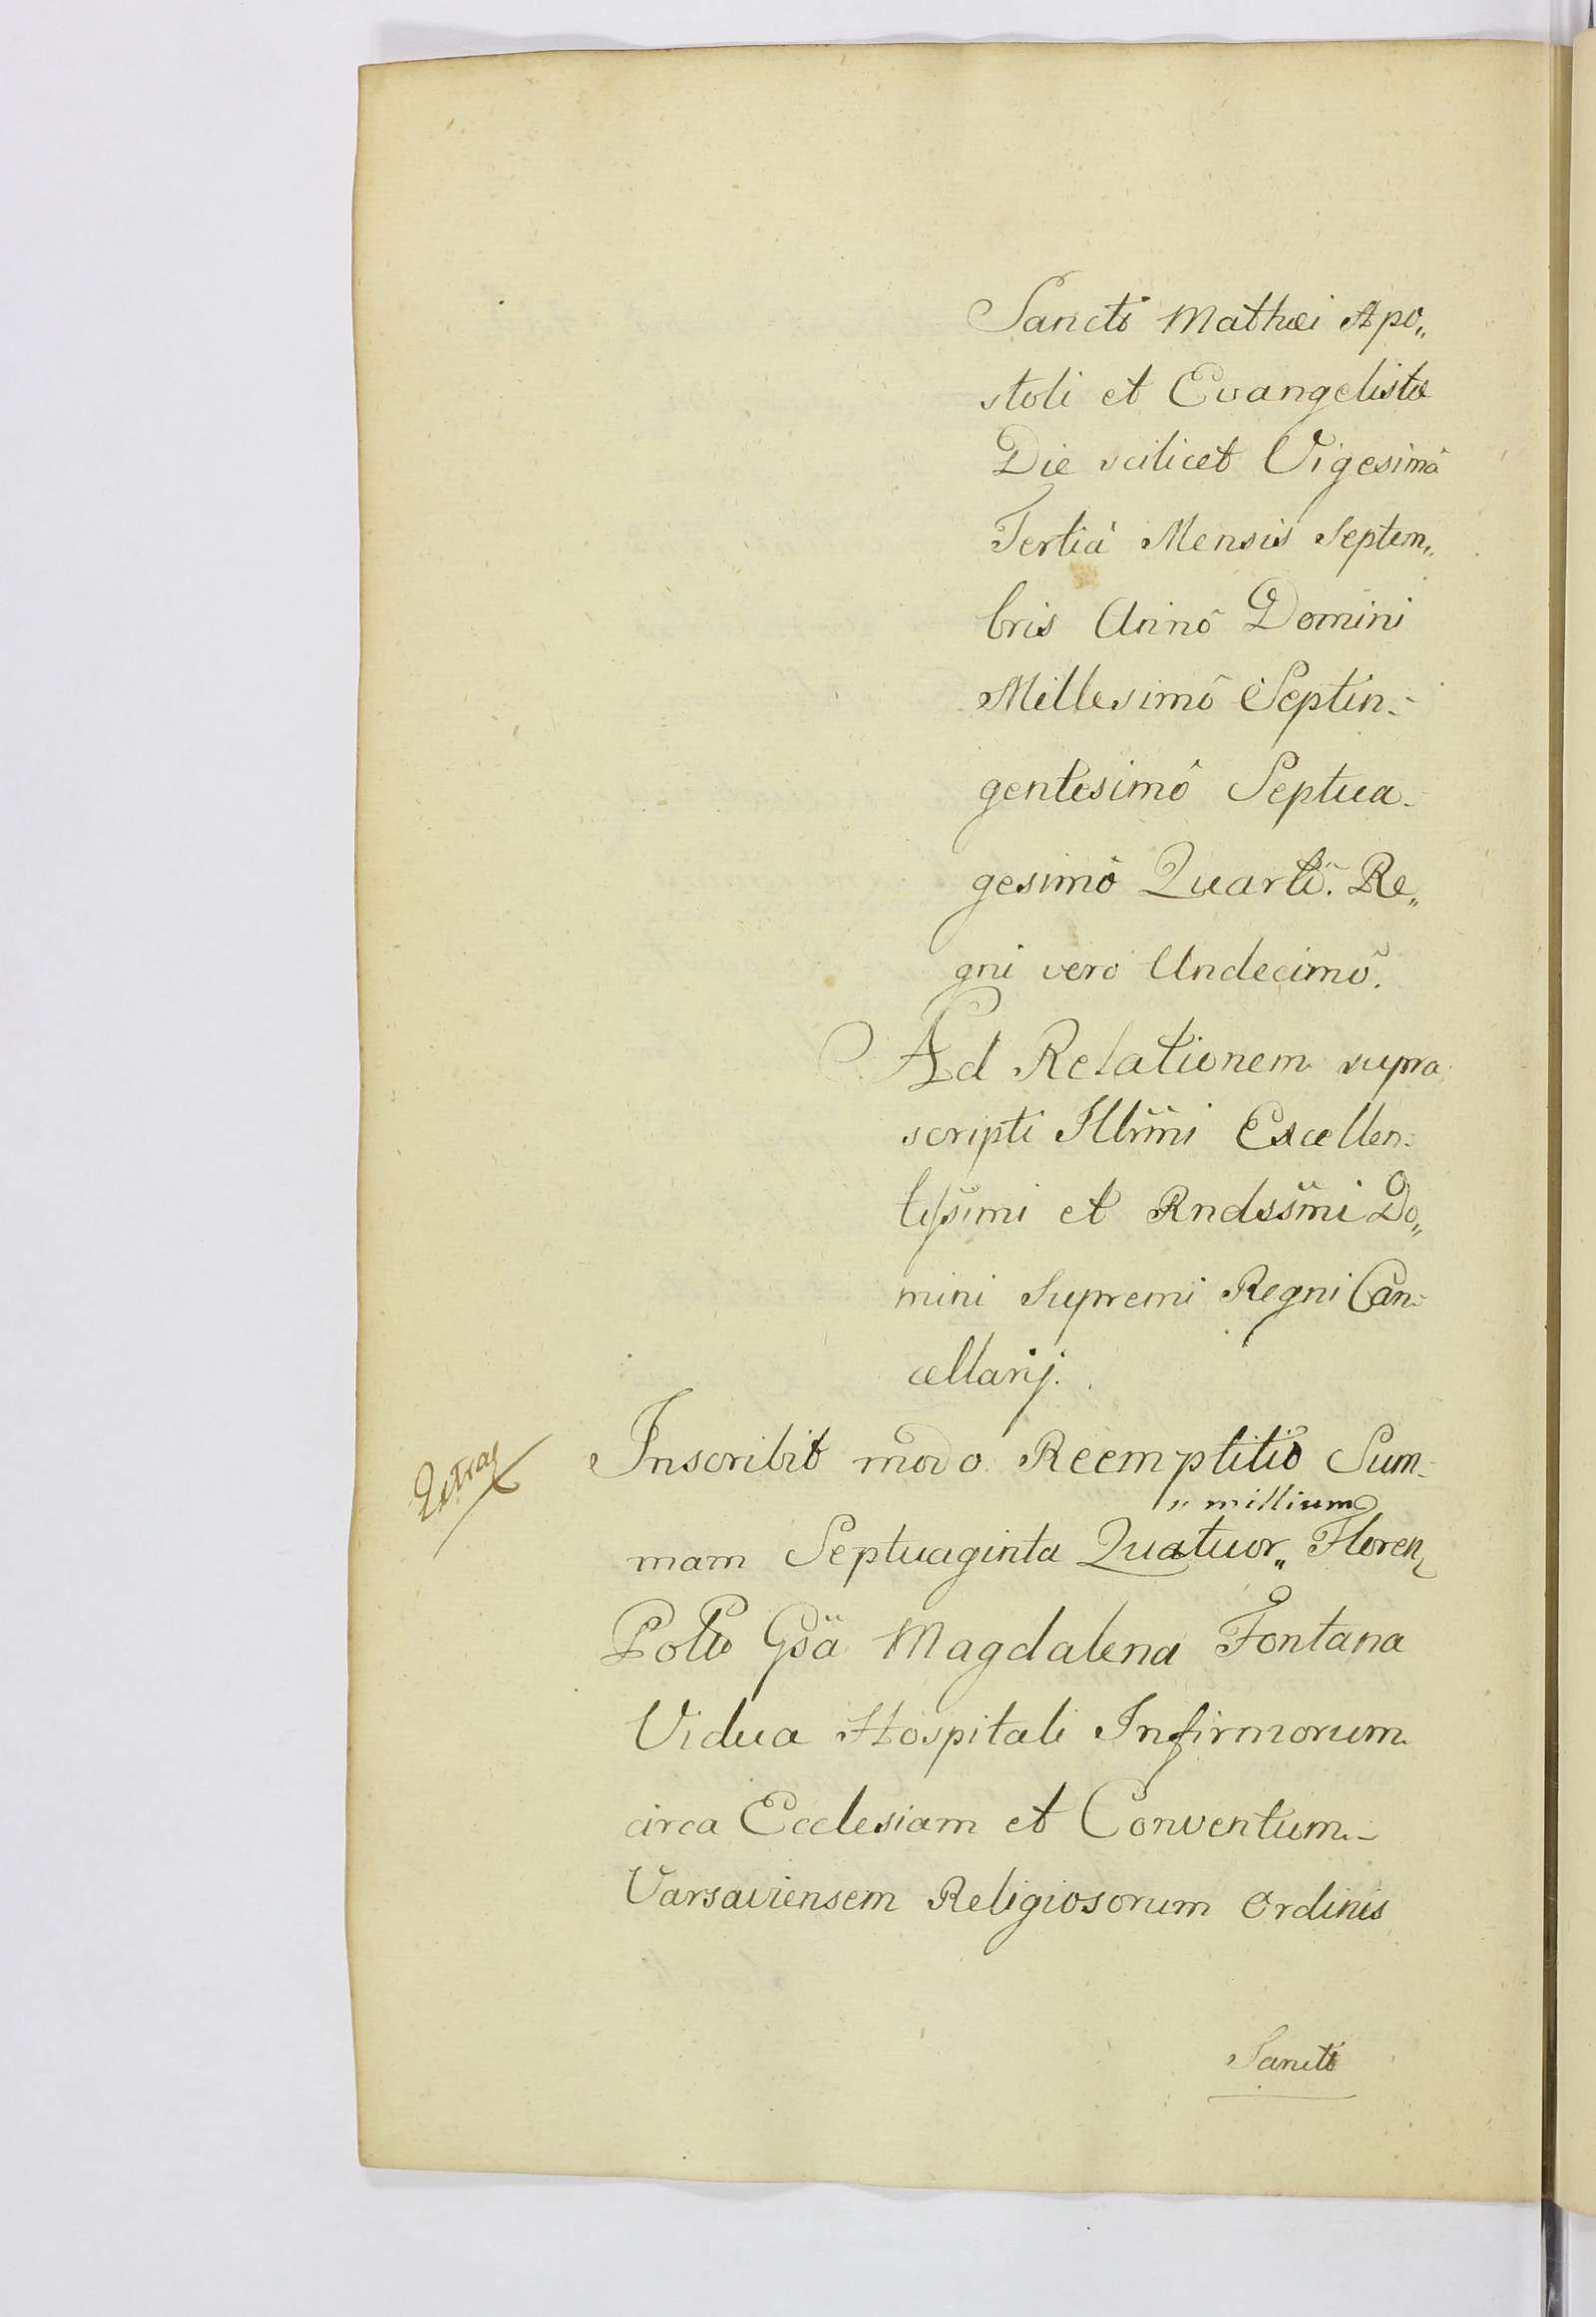 Sancti Mathæi Apo„
stoli et Evangelistæ
Die scilicet Vigesimâ
Tertiâ Mensis Septem„
bris Annô Domini
Millesimô Septin-
gentesimô Septua-
gesimô Quartô. Re„
gni vero Undecimô.
Ad Relationem supra
scripti Illm̃i Excellen-
tissimi et Rndssm̃i Do„
mini Supremi Regni Can-
cellarij.
Extra
Inscribit modo Reemptitio Sum-
„ millium
mam Septuaginta Quatuor„ Floren
Polo Gsã Magdalena Fontana
Vidua Hospitali Infirmorum
circa Ecclesiam et Conventum-
Varsaviensem Religiosorum Ordinis
Sancti